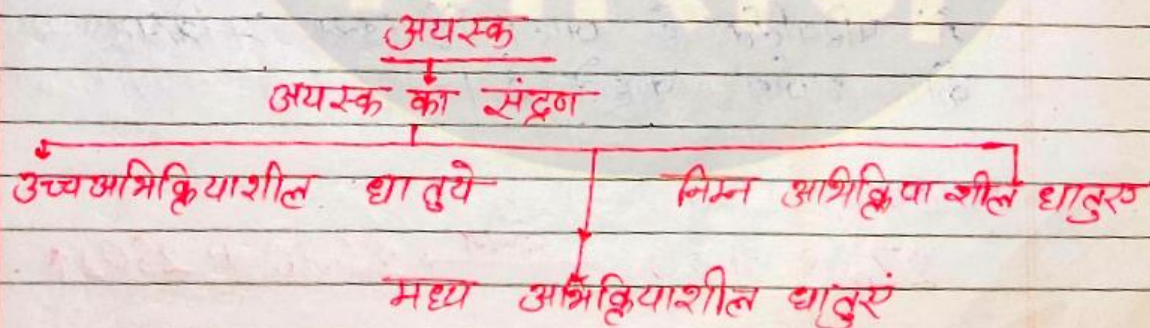 अयस्क
अयस्क का संद्रण
उच्च अभिक्रियाशील धातुये
निम्न अभिक्रियाशील धातुएं
मध्य अभिक्रियाशील धातुएं